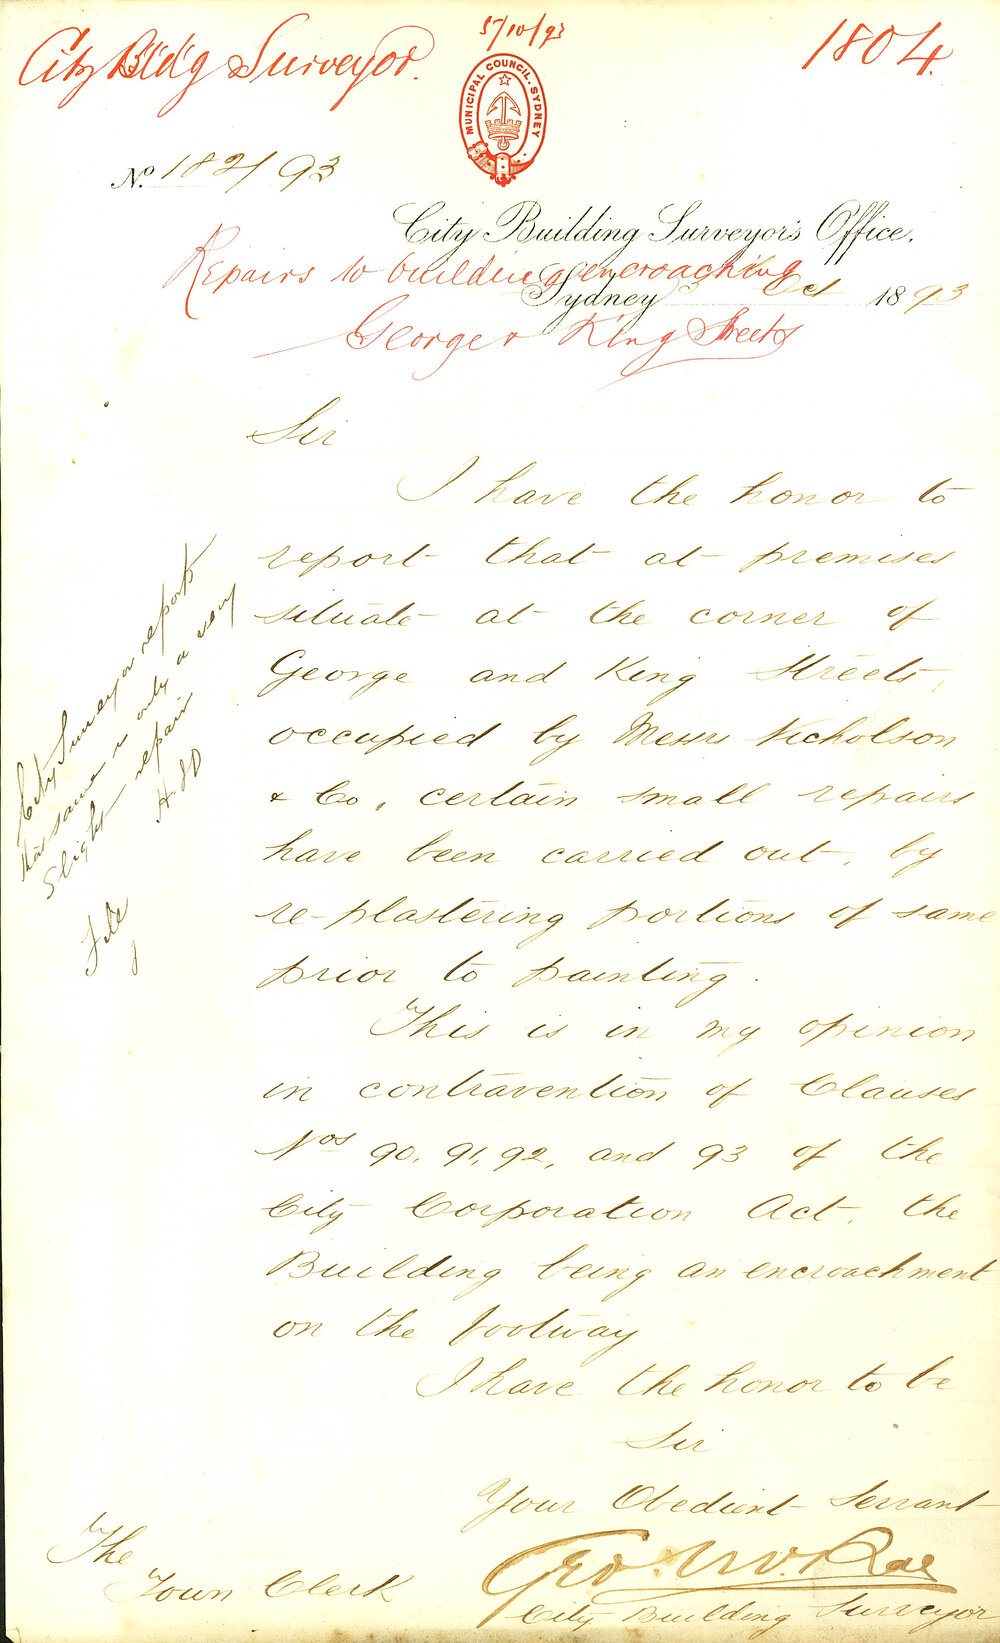 5/10/93
City Bldg Surveyor.
1804.
MUNICIPAL COUNCIL. SYDNEY
No. 182/93
City Building Surveyor's Office.
Repairs to building encroaching
Sydney 3 Oct 1893
George & King Streets
Sir
I have the honor to
report that at premises
situate at the corner of
George and King Streets,
occupied by Messrs Nicholson
& Co, certain small repairs
have been carried out, by
re-plastering portions of same
prior to painting.
This is in my opinion
in contravention of Clauses
Nos 90, 91, 92, and 93 of the
City Corporation Act, the
Building being an encroachment
on the footway
I have the honor to be
Sir
Your Obedient Servant
Geo. McRae
City Building Surveyor
The
Town Clerk
City Surveyor reports
this same is only a very
slight repair
File